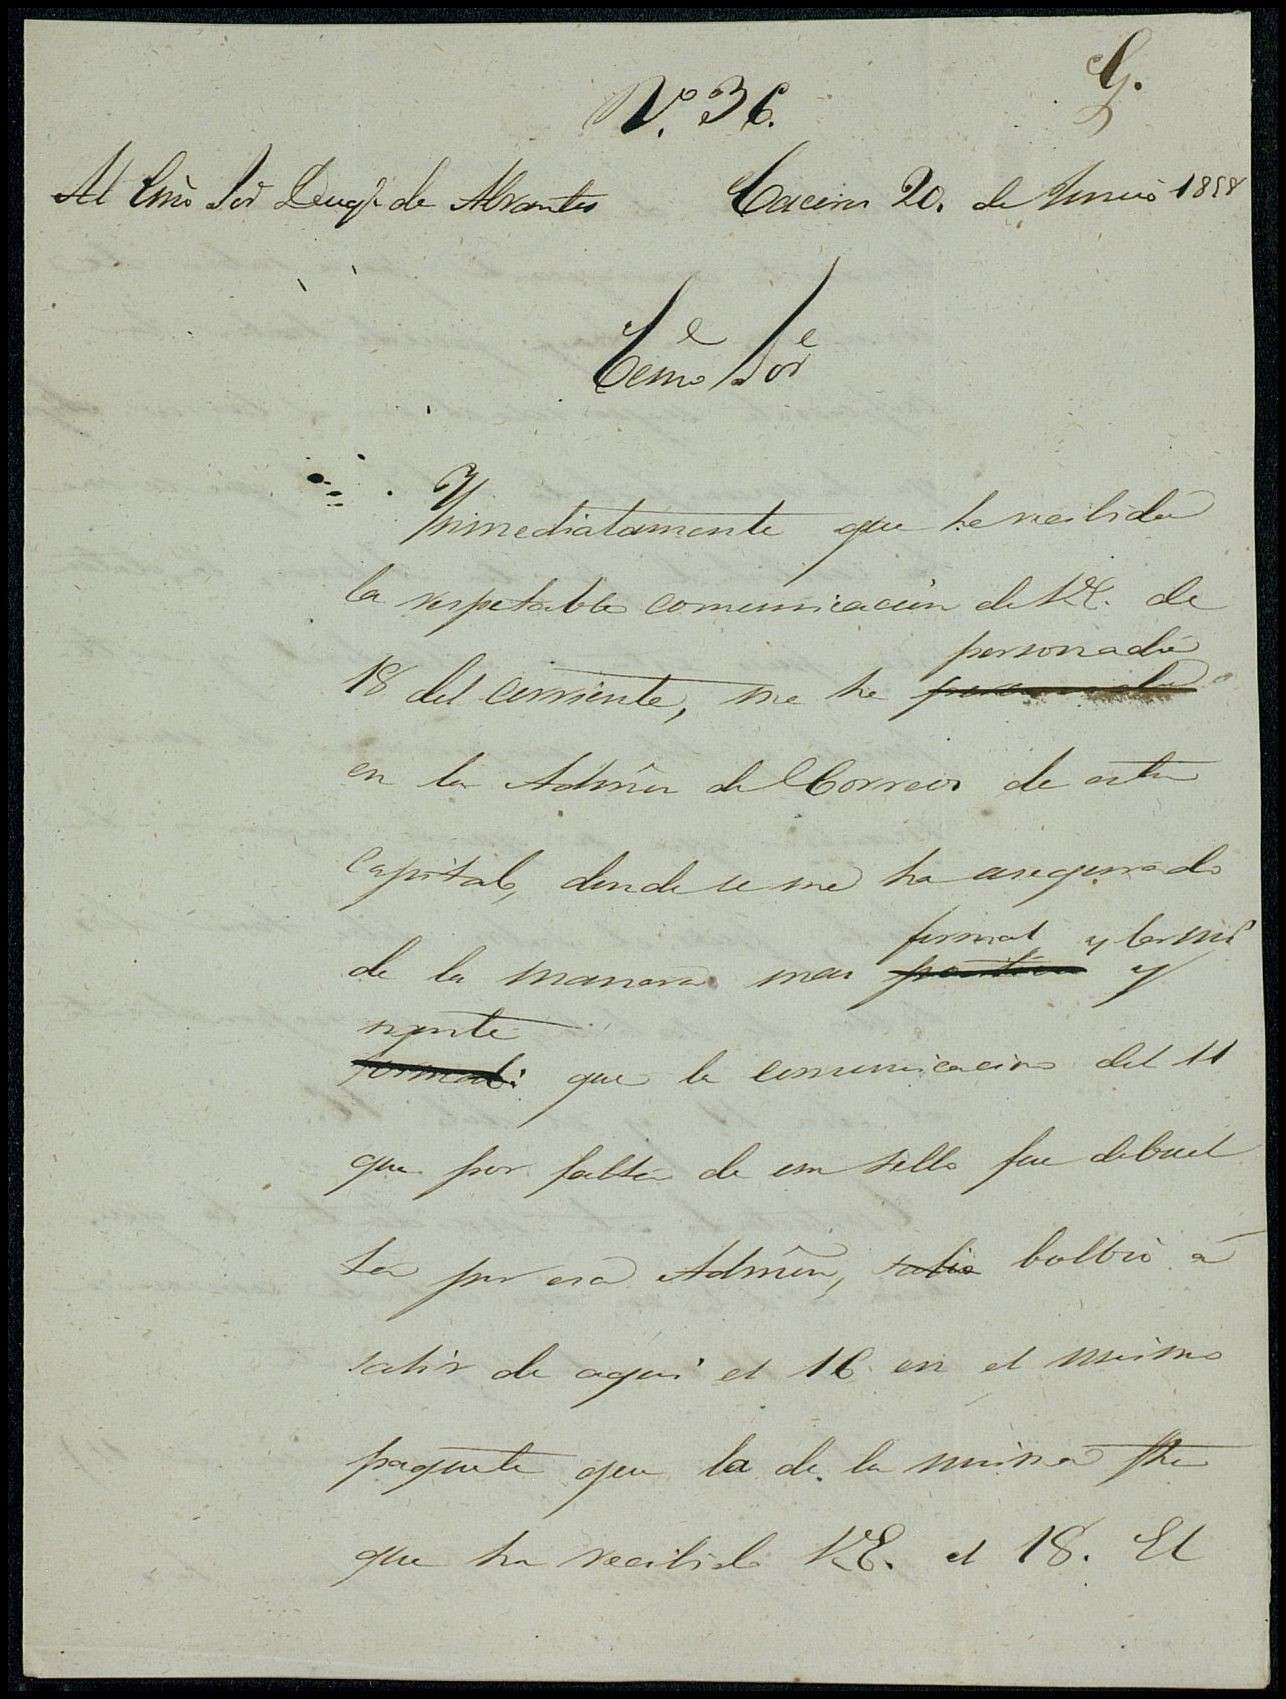 G.
N.º 36.
Al Emo Sor Duq.e de Abrantes Caceres 20. de Junio 1858
Ecmo Sor
Ynmediatamente que he recibido
la respetable comunicacion de V.E. de
personado
18 del corriente, me he
en la Admon de Correos de esta
capital, donde se me ha asegurado
formal y termi
de la manera mas positiva y
nante
formal: que la comunicacion del 11
que por falta de un sello fue debuel
ta por esa Admon, salio bolbió á
salir de aqui el 16 en el mismo
paquete que la de la misma fha
que ha recibido V.E. el 18. El